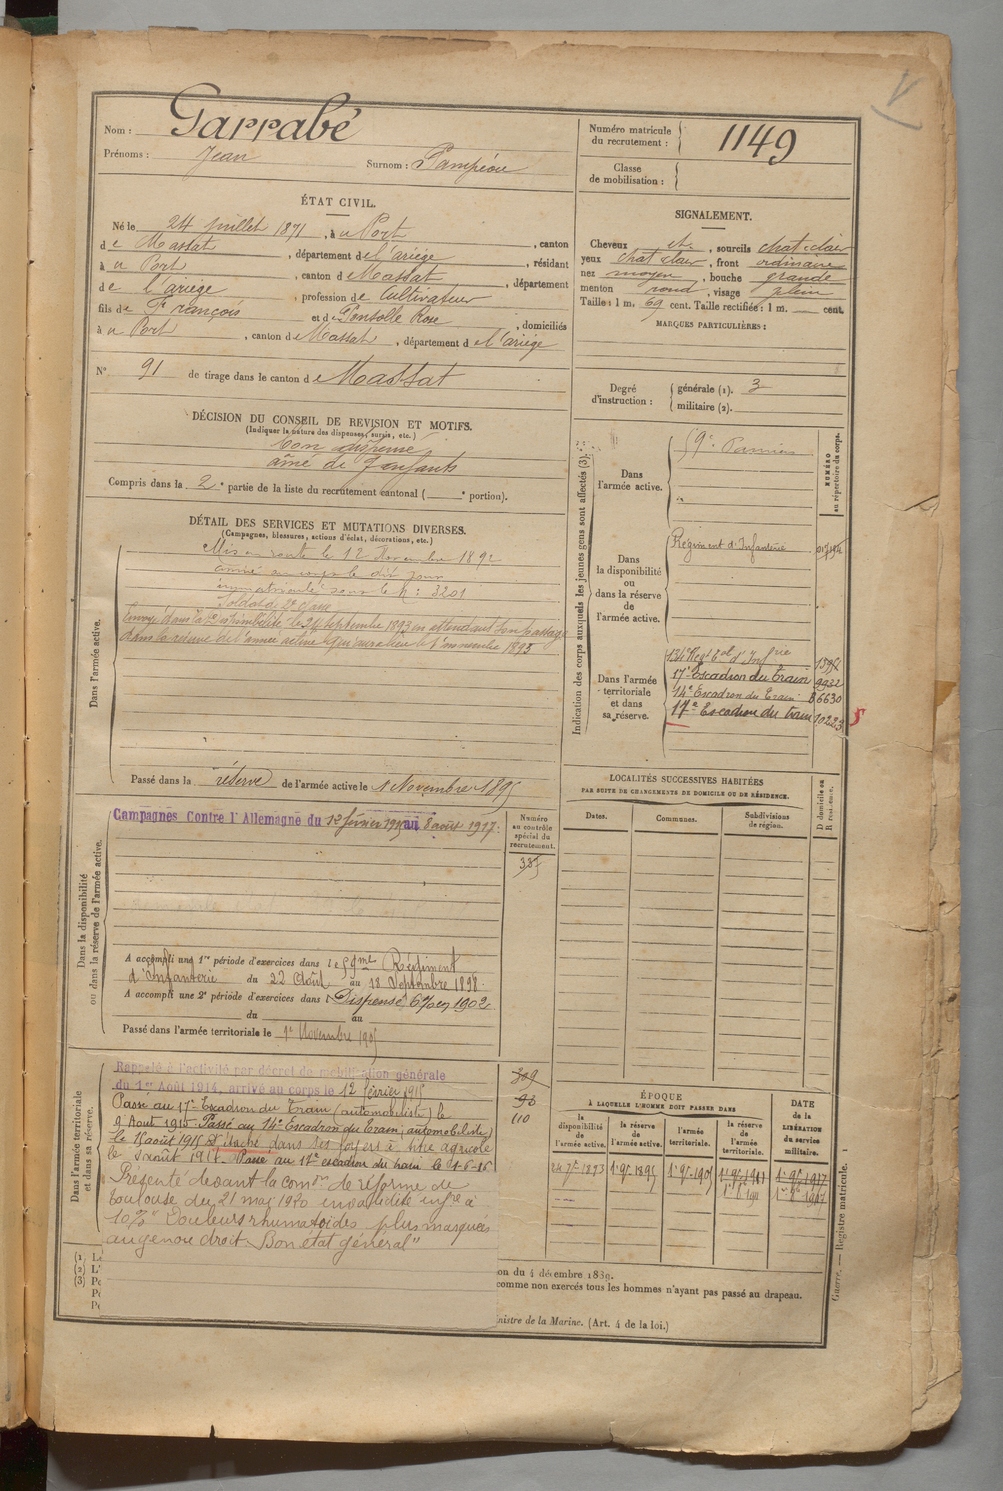 Nom : Garrabé
Prénoms : Jean
Surnom : Pampéou
Numéro matricule du recrutement : 1149
Classe de mobilisation :
ÉTAT CIVIL.
Né le 24 juillet 1871, à u Port, canton
de Massat, département de l'ariège, résidant
à u Port, canton de Massat, département
de l'ariège, profession de cultivateur
fils de François et de Rose, domiciliés
à u Port, canton de Massat, département de l'ariège
N° 91 de tirage dans le canton de Massat
SIGNALEMENT.
Cheveux et, sourcils chat-clair
yeux chat clair, front ordinaire
nez moyen, bouche grande
menton rond, visage plein
Taille : 1 m. 69 cent. Taille rectifiée : 1 m. cent.
MARQUES PARTICULIÈRES :
Degré d'instruction : générale (1). 3
militaire (2).
DÉCISION DU CONSEIL DE REVISION ET MOTIFS.
(Indiquer la nature des dispenses, sursis, etc.)
bon dispensé
aîné de 7 enfants
Compris dans la 2e partie de la liste du recrutement cantonal ( e portion).
DÉTAIL DES SERVICES ET MUTATIONS DIVERSES.
(Campagnes, blessures, actions d'éclat, décorations, etc.)
Dans l'armée active.
Mis en route le 12 Novembre 1892
arrivé au corps le dit jour
immatriculé sous le n° : 3201
Soldat de 2e classe
Envoyé dans la disponibilité le 24 septembre 1893 en attendant son passage
dans la réserve de l'armée active qui aura lieu le 1er novembre 1895
Passé dans la réserve de l'armée active le 1 Novembre 1895
Indication des corps auxquels les jeunes gens sont affectés (3).
NUMÉRO au répertoire du corps.
Dans l'armée active.
59e Pamiers
Dans la disponibilité ou dans la réserve de l'armée active.
Régiment d'Infanterie
Dans l'armée territoriale et dans sa réserve.
134e Régt Eal d'Infrie
17e Escadron du Train 9932
14e Escadron du Train B 6630
17e Escadron du train 10223
LOCALITÉS SUCCESSIVES HABITÉES
PAR SUITE DE CHANGEMENTS DE DOMICILE OU DE RÉSIDENCE.
Dates.
Communes.
Subdivisions de région.
D domicile ou R résidence.
Dans la disponibilité ou dans la réserve de l'armée active.
Campagnes Contre l'Allemagne du 12 février 1915 au 8 août 1917.
Numéro au contrôle spécial du recrutement.
A accompli une 1re période d'exercices dans le 59me Régiment
d'Infanterie du 22 Août au 18 Septembre 1898
A accompli une 2e période d'exercices dans Dispensé 6% en 1902
du au
Passé dans l'armée territoriale le 1er Novembre 1905
Dans l'armée territoriale et dans sa réserve.
Rappelé à l'activité par décret de mobilisation générale
du 1er Août 1914, arrivé au corps le 12 février 1915
Passé au 17e Escadron du Train (automobiliste) le
9 Août 1915. Passé au 14e Escadron du Train (automobiliste)
le août 1915 Détaché dans ses foyers à titre agricole
le août 1917. Passé au 17e escadron du train le 1-6-16
Présenté devant la comon de réforme de
Toulouse du 21 mai 1920 invalidité infre à
10% "Douleurs rhumatoïdes plus marquées
au genou droit. Bon état général"
309
93
110
ÉPOQUE
À LAQUELLE L'HOMME DOIT PASSER DANS
la disponibilité de l'armée active.
la réserve de l'armée active.
l'armée territoriale.
la réserve de l'armée territoriale.
DATE de la LIBÉRATION du service militaire.
24 7bre 1893
1er 9bre 1895
1er 9bre 1905
1er 9bre 1911
1er 9bre 1917
on du 4 décembre 1889.
comme non exercés tous les hommes n'ayant pas passé au drapeau.
nistre de la Marine. (Art. 4 de la loi.)
(1)
(2) L'
(3) Po
Guerre. — Registre matricule. 1